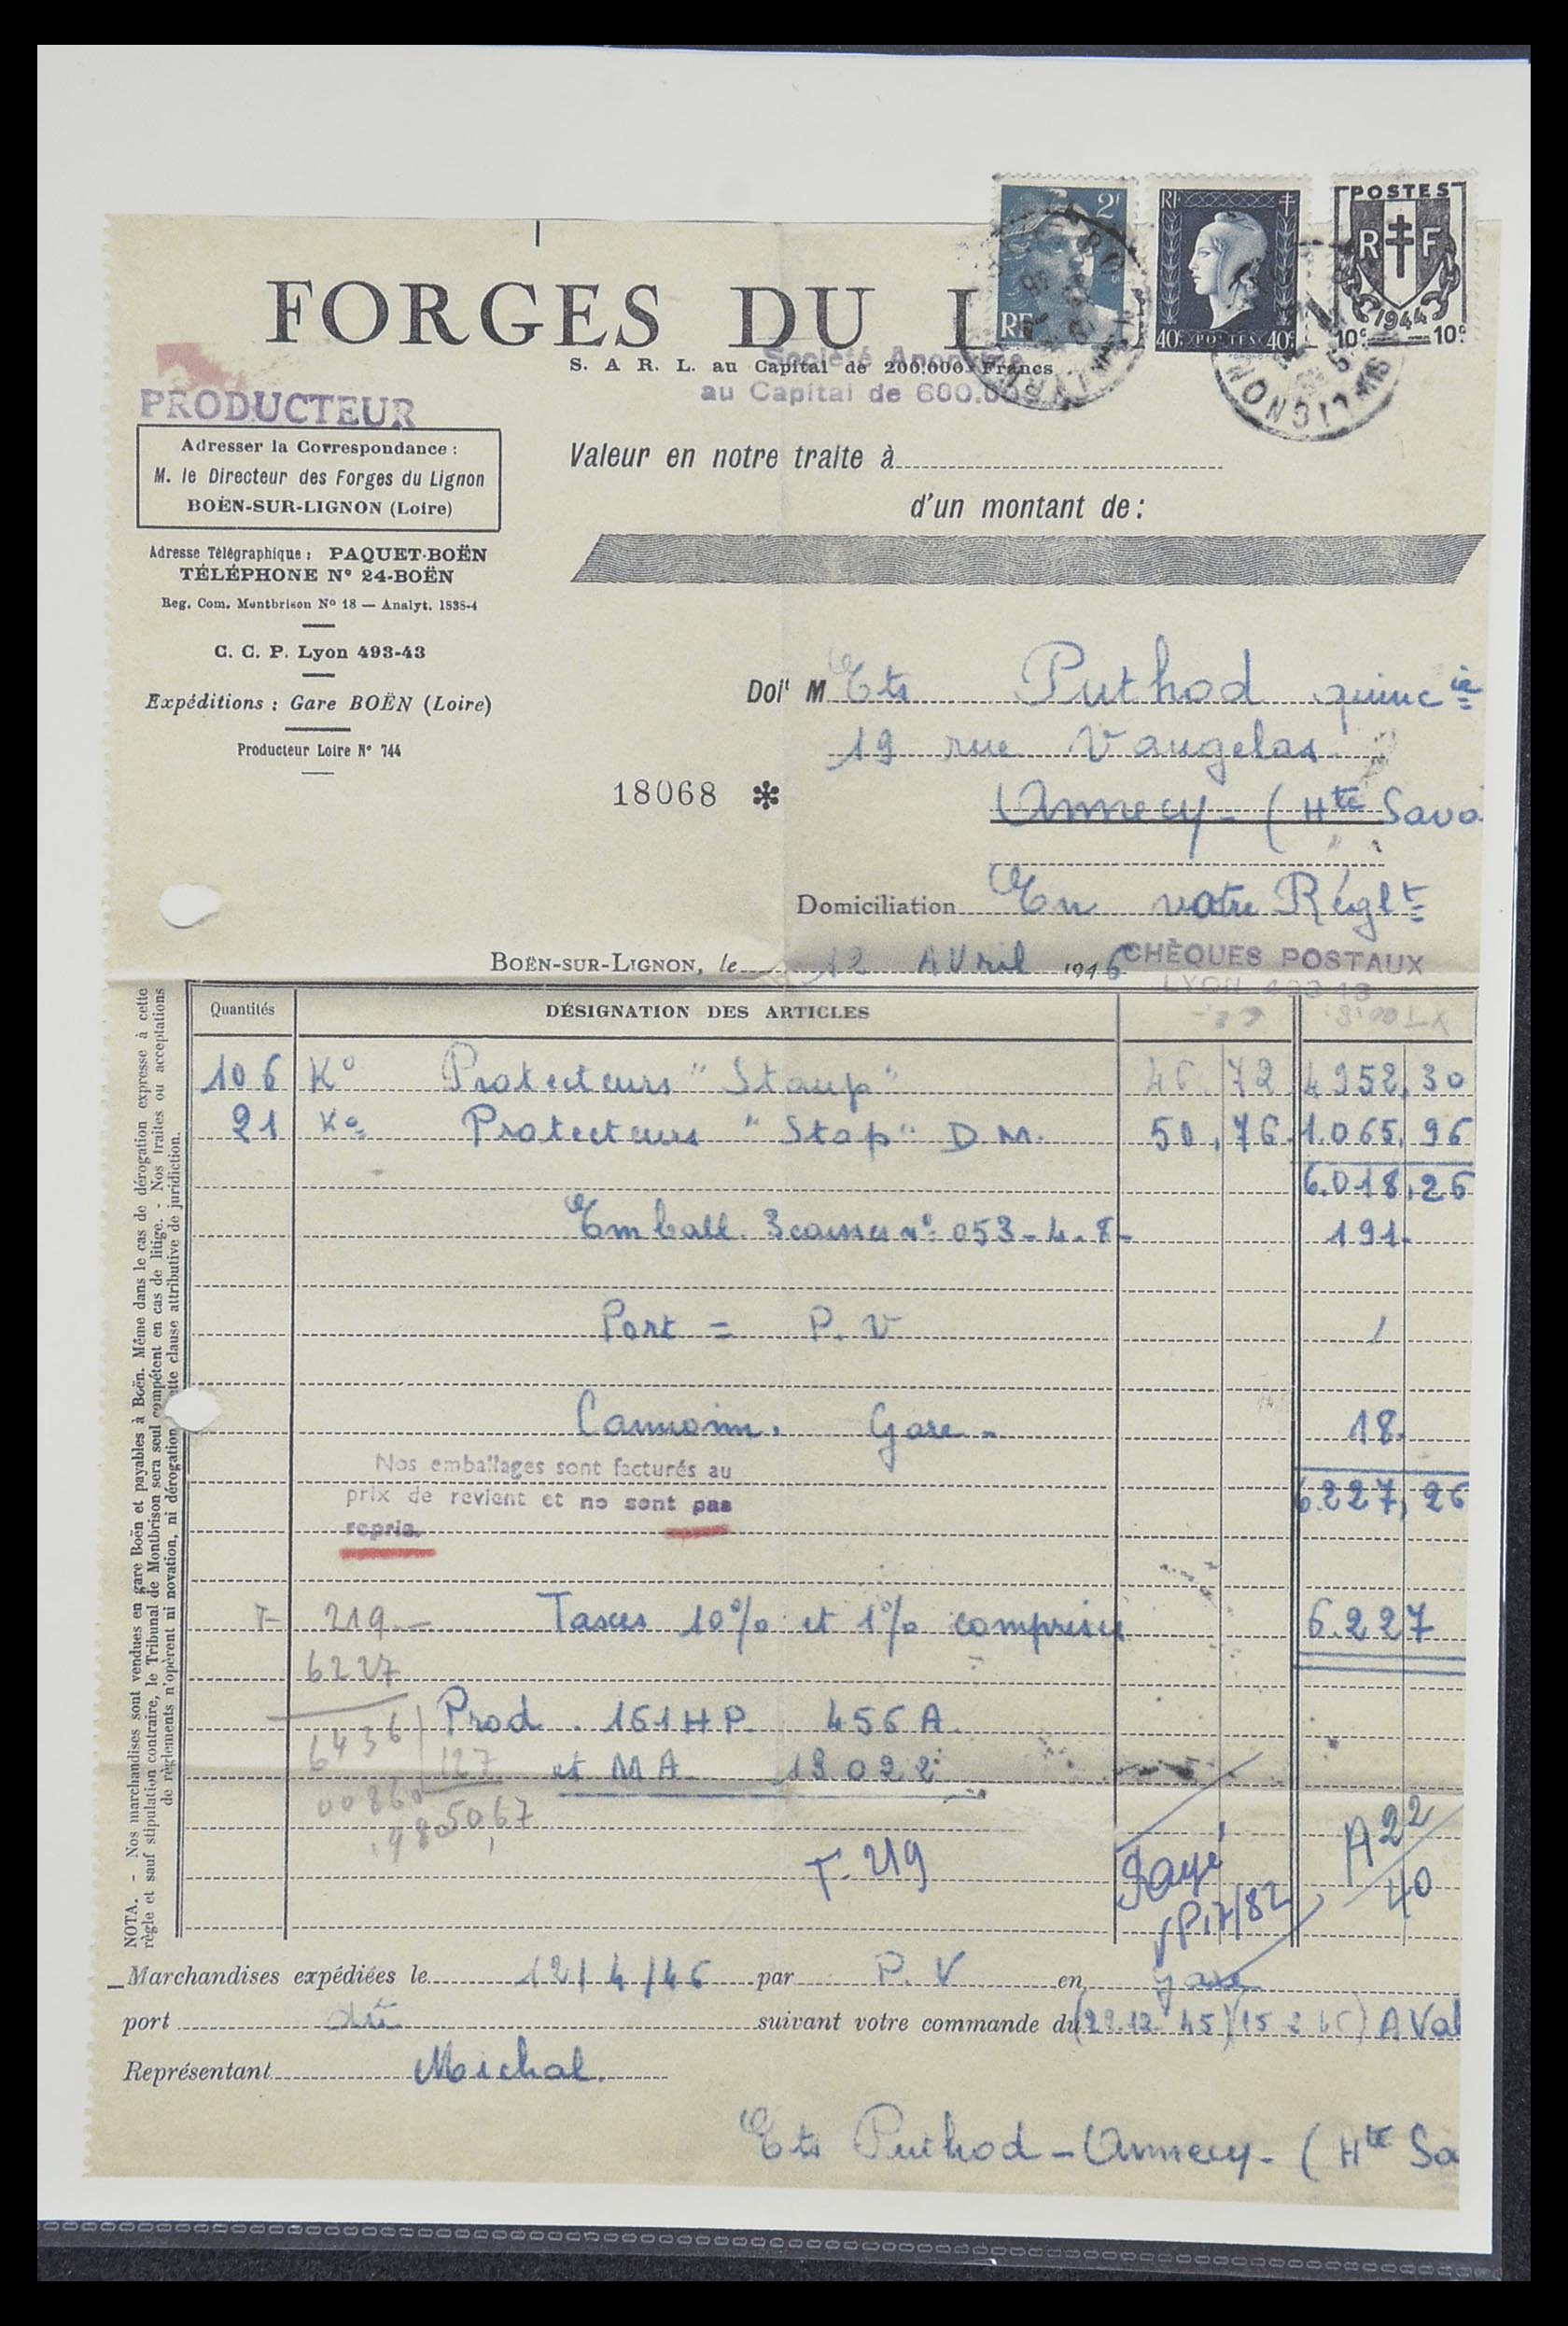 2F
RF
RF
40c POSTES 40c
POSTES
RF
1944
10c 10c
FORGES DU
S. A R. L. au Capital de 200.000 Francs
Société Anonyme
au Capital de 600.000
LIGNON
PRODUCTEUR
Adresser la Correspondance :
M. le Directeur des Forges du Lignon
BOËN-SUR-LIGNON (Loire)
Adresse Télégraphique : PAQUET-BOËN
TÉLÉPHONE N° 24-BOËN
Reg. Com. Montbrison N° 18 — Analyt. 1538-4
C. C. P. Lyon 493-43
Expéditions : Gare BOËN (Loire)
Producteur Loire N° 744
Valeur en notre traite à
d'un montant de :
Doit M Ets Puthod quincie
19 rue Vaugelas
18068 *
Annecy - (Hte Savo
Domiciliation En votre Réglt
BOËN-SUR-LIGNON, le 12 AVril 1946
CHÈQUES POSTAUX
LYON 493-43
Quantités DÉSIGNATION DES ARTICLES
106 K° Protecteurs " Staup " 46.72 4952,30
21 K° Protecteurs " Stop " D.M. 50,76 1.065,96
6.018,26
Emball. 3 caisses n° 053-4-8- 191.
Port = P.V /
Camion. Gare - 18.
Nos emballages sont facturés au
prix de revient et no sont pas
repris.
6.227,26
T- 219.- Taxes 10% et 1% comprises 6.227
6227
6436 127
Prod. 161HP 456A
et MA 13022
00860
980 50,67
T- 219
Payé
A22
40
Marchandises expédiées le 12/4/46 par P.V en gare
port dû suivant votre commande du (29.12.45) (15 2 46) A Val
Représentant Michal.
Ets Puthod - Annecy - (Hte Sa
NOTA. - Nos marchandises sont vendues en gare Boën et payables à Boën. Même dans le cas de dérogation expresse à cette
règle et sauf stipulation contraire, le Tribunal de Montbrison sera seul compétent en cas de litige. - Nos traites ou acceptations
de règlements n'opèrent ni novation, ni dérogation clause attributive de juridiction.